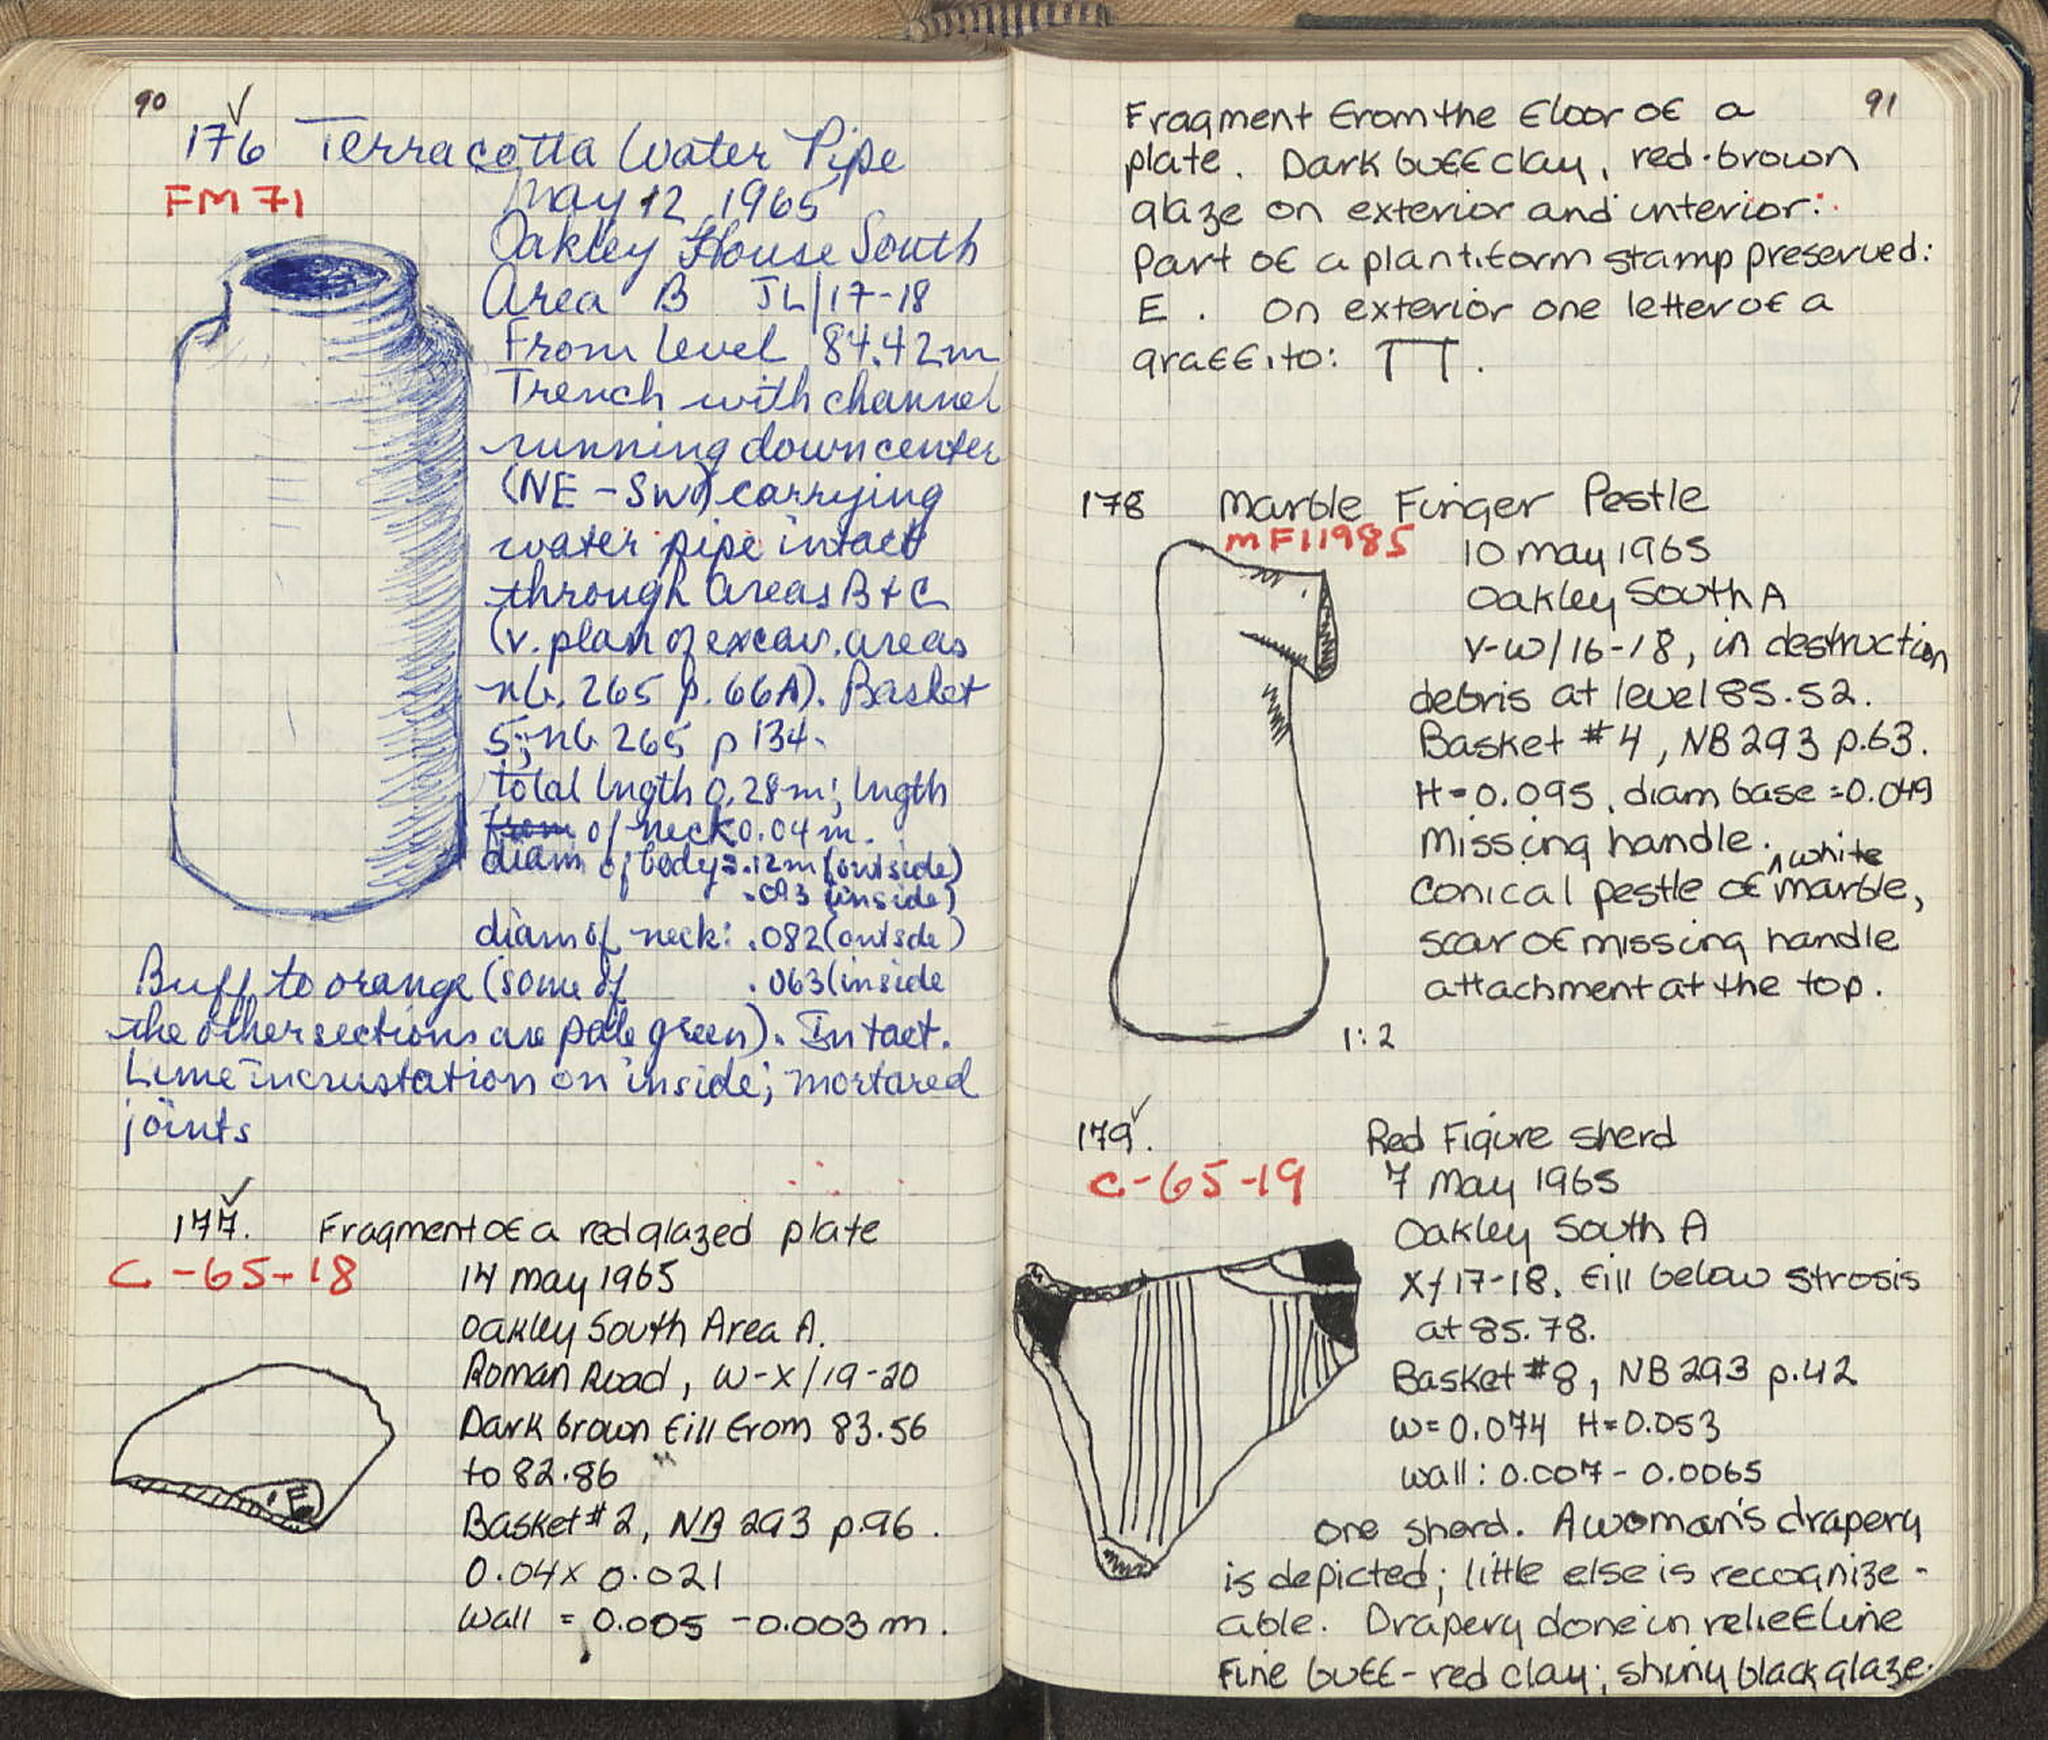 90
176 Terracotta Water Pipe
FM 71
May 12, 1965
Oakley House South
Area B JL/17-18
From level 84.42m
Trench with channel
running down center
(NE-SW) carrying
water pipe intact
through Areas B + C
(v. plan of excav. areas
nb. 265 p. 66A). Basket
5; nb 265 p 134.
total lngth 0.28m; lngth
from of neck 0.04 m.
diam of body = .12m (outside)
.093 (inside)
diam of neck: .082 (outsde)
.063 (inside
Buff to orange (some of
the other sections are pale green). Intact.
Lime incrustation on inside; mortared
joints
177. Fragment of a red glazed plate
C-65-18
14 May 1965
Oakley South Area A.
Roman Road, W-X/19-20
Dark brown fill from 83.56
to 82.86
Basket #2, NB 293 p.96.
0.04 x 0.021
Wall = 0.005 - 0.003 m.
E
91
Fragment from the floor of a
plate. Dark buff clay, red-brown
glaze on exterior and interior.
Part of a plantiform stamp preserved:
E. On exterior one letter of a
graffito: Π.
178 Marble Finger Pestle
MF11985
10 May 1965
Oakley South A
V-W/16-18, in destruction
debris at level 85.52.
Basket #4, NB 293 p.63.
H=0.095, diam base=0.049
Missing handle.
Conical pestle of ^white marble,
scar of missing handle
attachment at the top.
1:2
179.
C-65-19
Red Figure sherd
7 May 1965
Oakley South A
X/17-18, fill below strosis
at 85.78.
Basket #8, NB 293 p.42
W=0.074 H=0.053
wall: 0.007-0.0065
One sherd. A woman's drapery
is depicted; little else is recognize-
able. Drapery done in relief line
Fine buff-red clay; shiny black glaze.